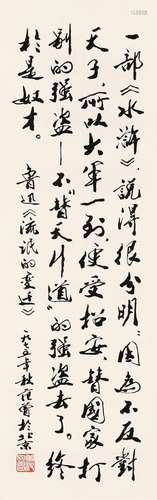 一部《水滸》，說得很分明：因為不反對
天子，所以大軍一到，便受招安，替國家打
别的强盗——不“替天行道”的强盗去了。终
於是奴才。
魯迅《流氓的变迁》
一九七五年秋范曾於北京